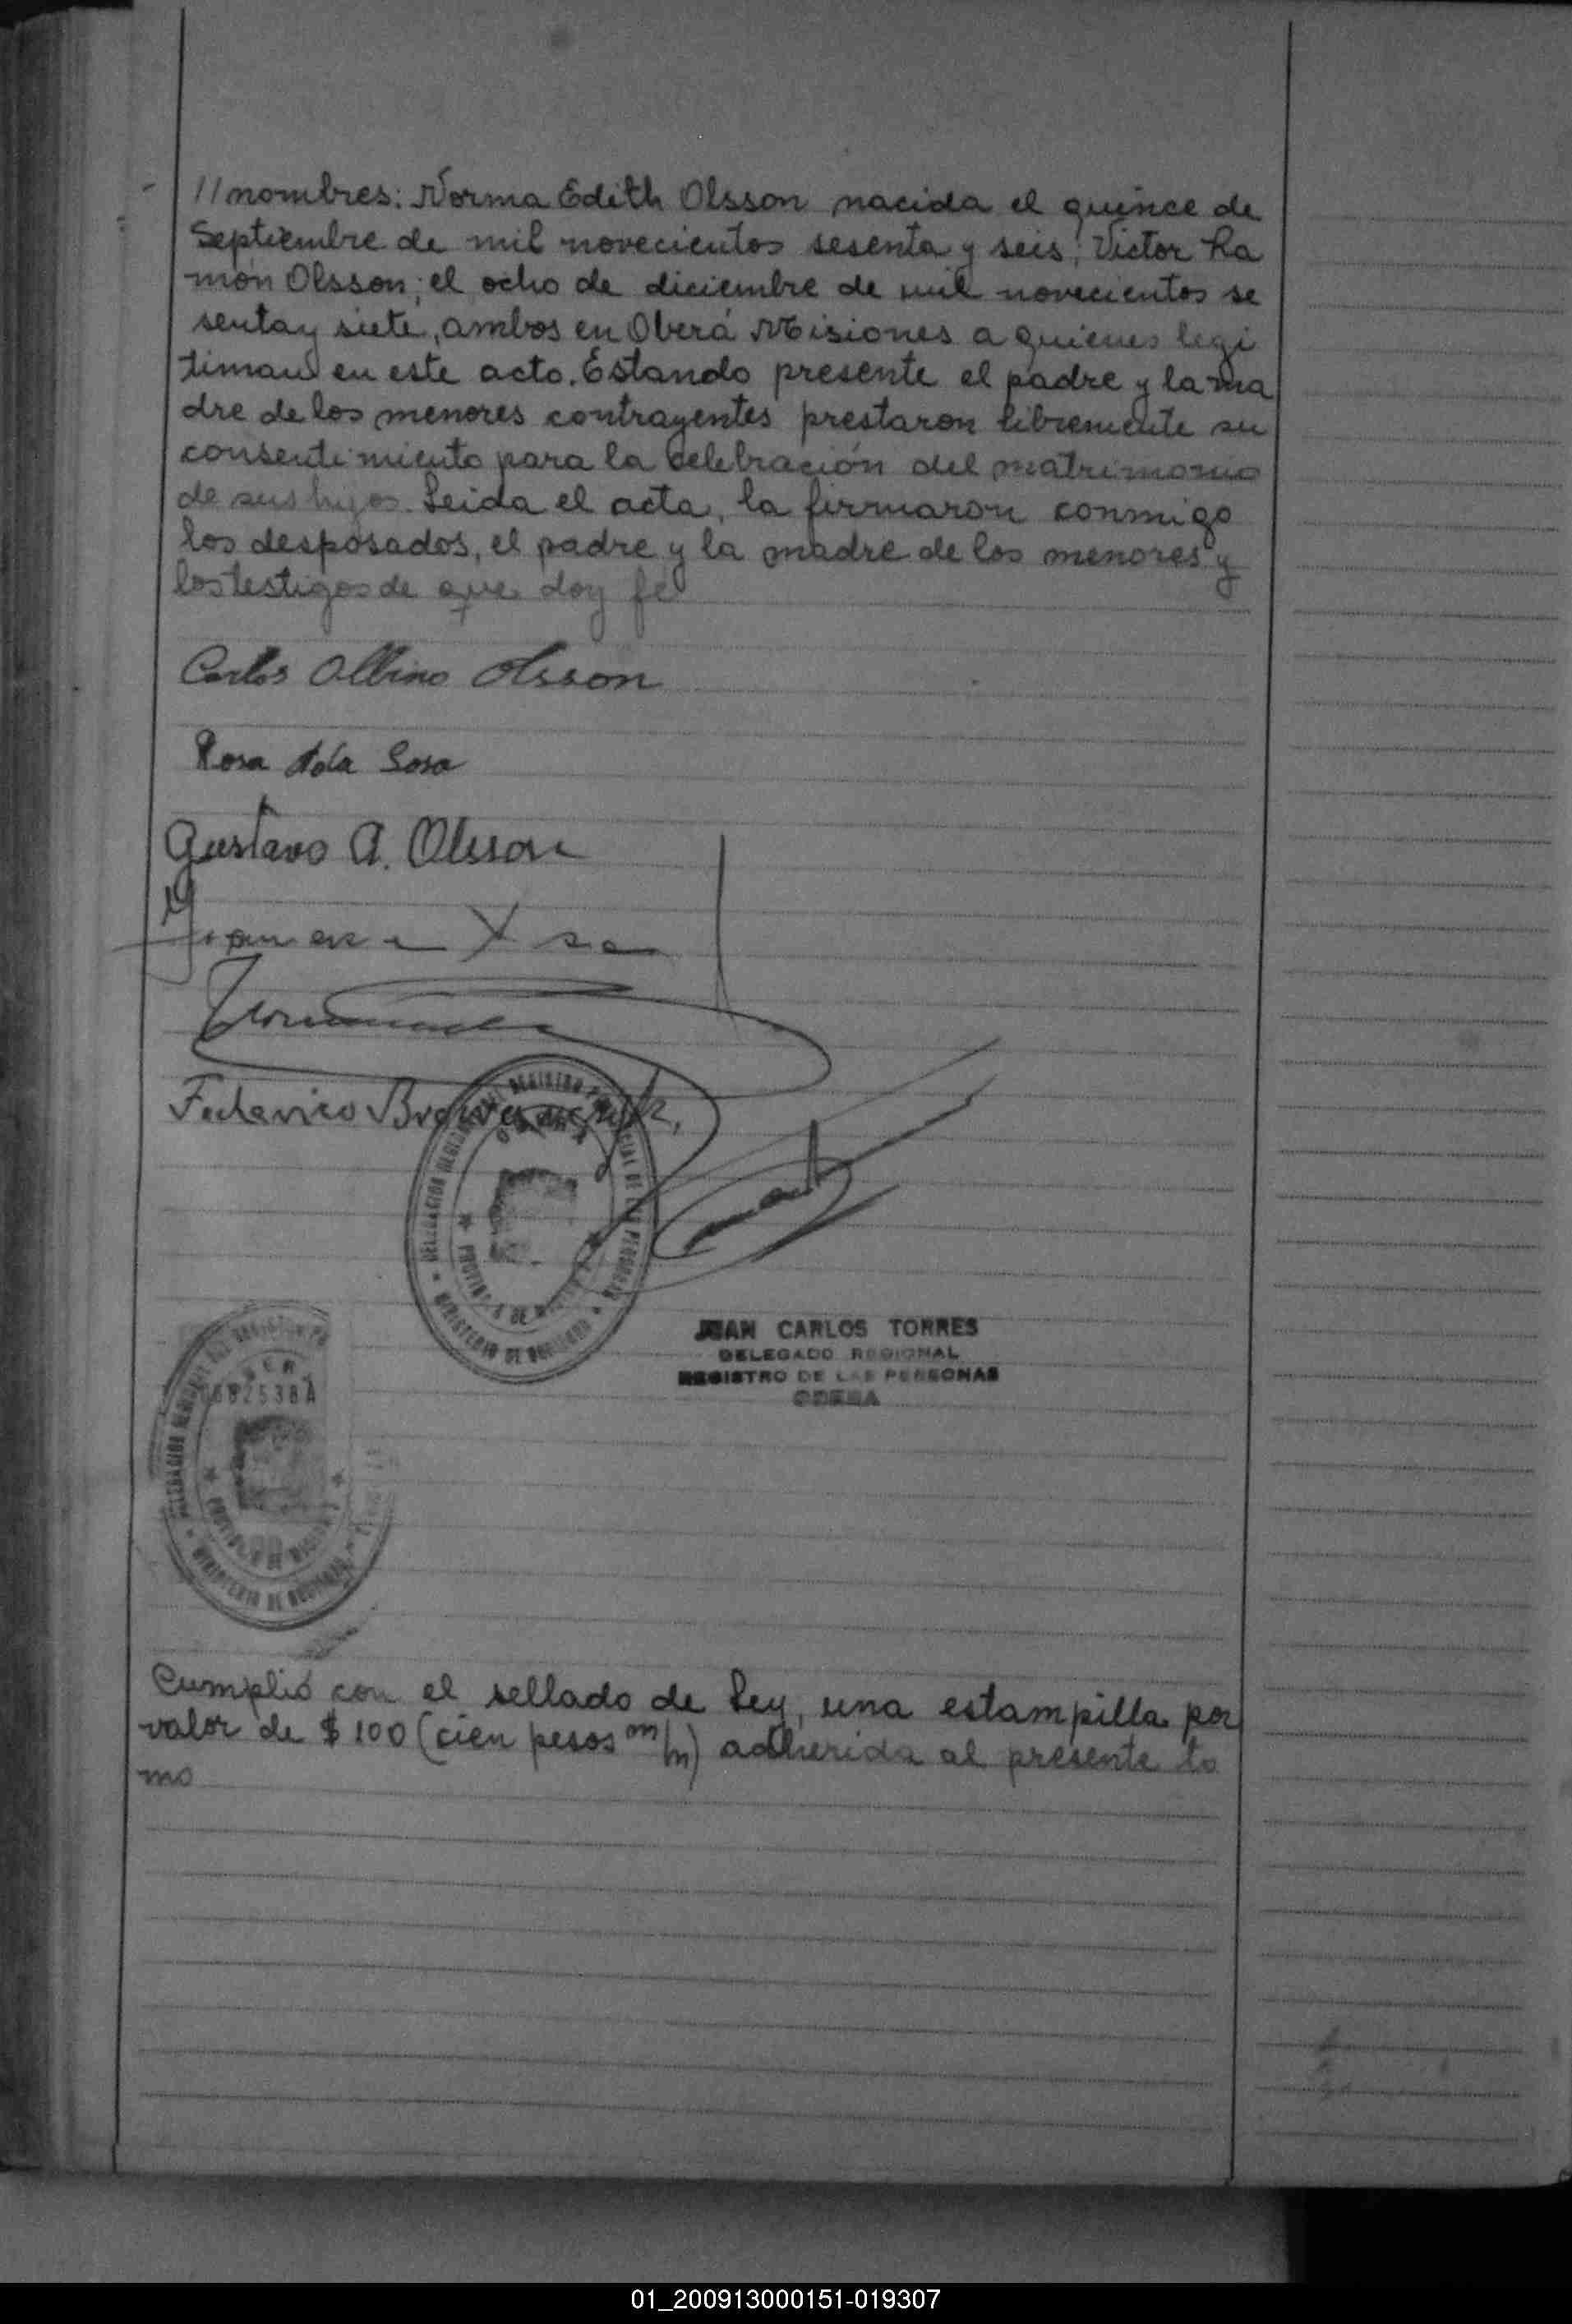 //nombres: Norma Edith Olsson nacida el quince de
Septiembre de mil novecientos sesenta y seis; Victor Ra
món Olsson; el ocho de diciembre de mil novecientos se
senta y siete, ambos en Oberá Misiones a quienes legi
timan en este acto. Estando presente el padre y la ma
dre de los menores contrayentes prestaron libremente su
consentimiento para la celebración del matrimonio
de sus hijos. Leida el acta, la firmaron conmigo
los desposados, el padre y la madre de los menores y
los testigos de que doy fé
Carlos Albino Olsson
Rosa Ada Sosa
Gustavo A. Olsson
Federico
JUAN CARLOS TORRES
DELEGADO REGIONAL
REGISTRO DE LAS PERSONAS
OBERA
Cumplió con el sellado de Ley, una estampilla por
valor de $ 100 (cien pesos m/n) adherida al presente to
mo
01_200913000151-019307